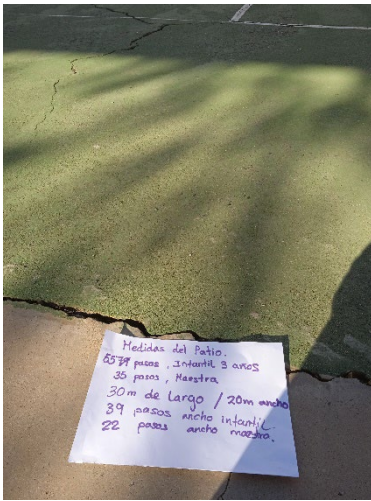 Medidas del Patio.
pasos, Infantil 3 años
35 pasos, Maestra
30m de Largo / 20m ancho
39 pasos ancho infantil.
22 pasos ancho maestra.